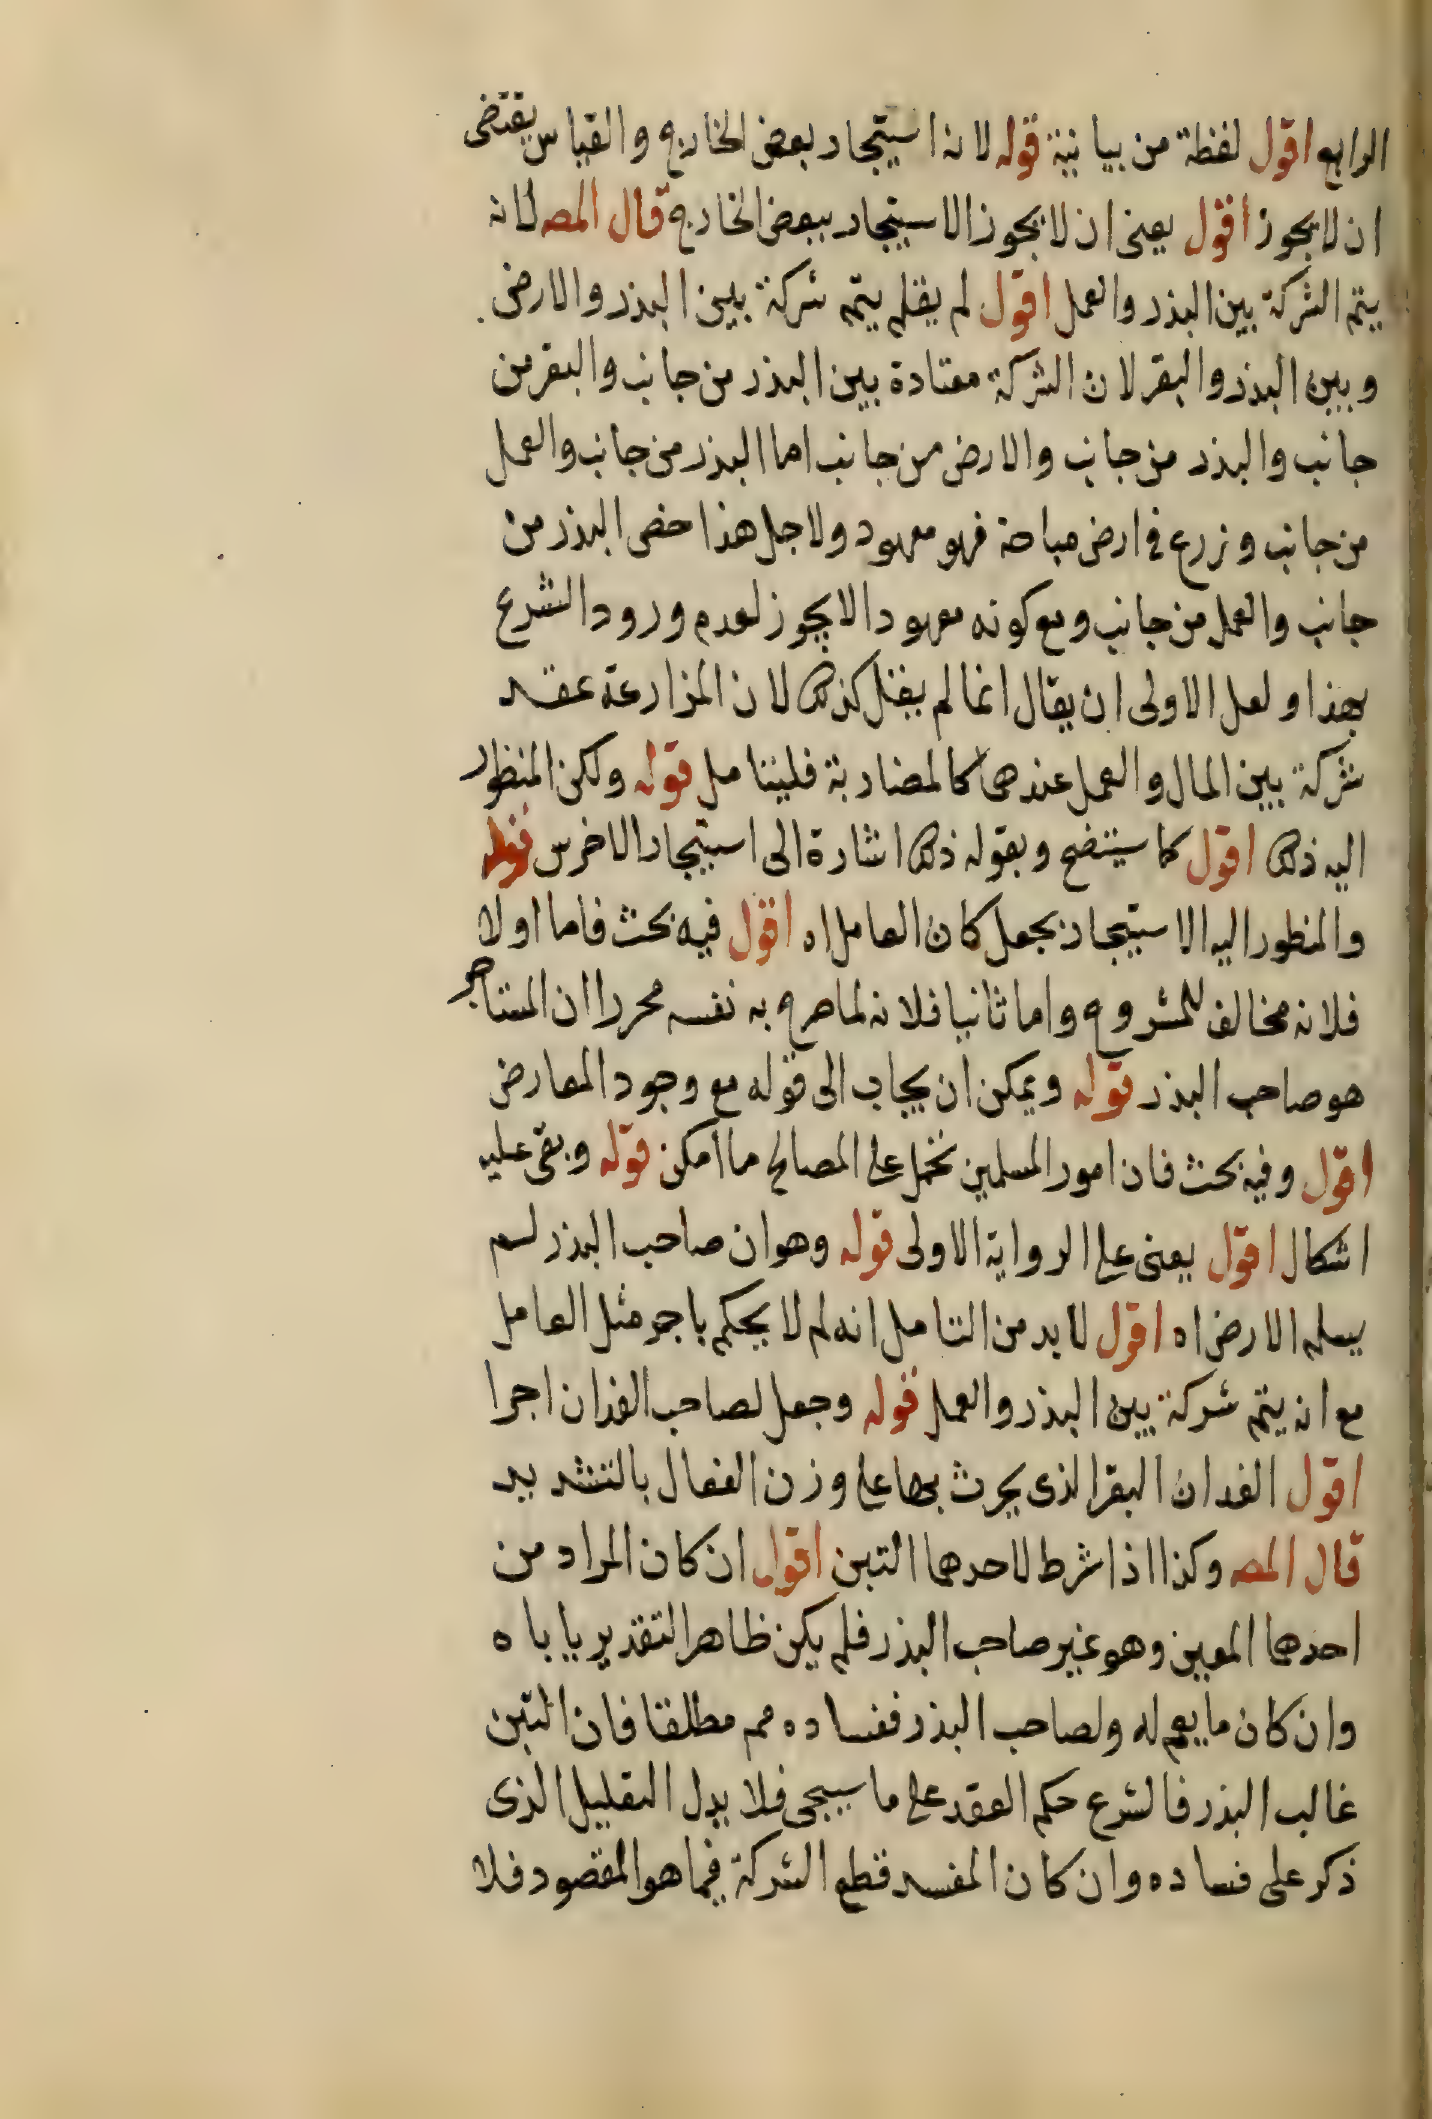 الرابع اقول لفظة من بيانية قوله لانه استيجار ببعض الخارج والقياس يقتضى
ان لا يجوز اقول يعنى ان لا يجوز الاستيجار ببعض الخارج قال المصه لانه
يتم الشركة بين البذر والعمل اقول لم يقل يتم شركة بين البذر والارض
وبين البذر والبقر لان الشركة معتادة بين البذر من جانب والبقر من
جانب والبذر من جانب والارض من جانب اما البذر من جانب والعمل
من جانب وزرع فى ارض مباحة فهو معهود ولاجل هذا خص البذر من
جانب والعمل من جانب ومع كونه معهودا لا يجوز لعدم ورود الشرع
بهذا ولعل الاولى ان يقال انما لم يقل كذلك لان المزارعة عقد
شركة بين المال والعمل عندهما كالمضاربة فليتامل قوله ولكن المنظور
اليه ذلك اقول كما سيتضح وبقوله ذلك اشارة الى استيجار الاخرس قوله
والمنظور اليه الاستيجار بجعل كان العامل اه اقول فيه بحث فاما اولا
فلانه مخالف للمشروح واما ثانيا فلانه لما صرح به نفسه محررا ان المستاجر
هو صاحب البذر قوله ويمكن ان يجاب الى قوله مع وجود المعارض
اقول وفيه بحث فان امور المسلمين تحمل على المصالح ما امكن قوله وبقى عليه
اشكال اقول يعنى على الرواية الاولى قوله وهو ان صاحب البذر لم
يسلم الارض اه اقول لا بد من التامل انه لم لا يحكم باجر مثل العامل
مع انه يتم شركة بين البذر والعمل قوله وجعل لصاحب الفدان اجرا
اقول الفدان البقر الذى يحرث بها على وزن الفعال بالتشديد
قال المصه وكذا اذا شرط لاحدهما التبن اقول ان كان المراد من
احدهما المعين وهو غير صاحب البذر فلم يكن ظاهر التقدير ياباه
وان كان ما يعم له ولصاحب البذر ففساده مم مطلقا فان التبن
غالب البذر فالشرع حكم العقد على ما سيجى فلا يدل التعليل الذى
ذكر على فساده وان كان المفسد قطع الشركة فيما هو المقصود فلا